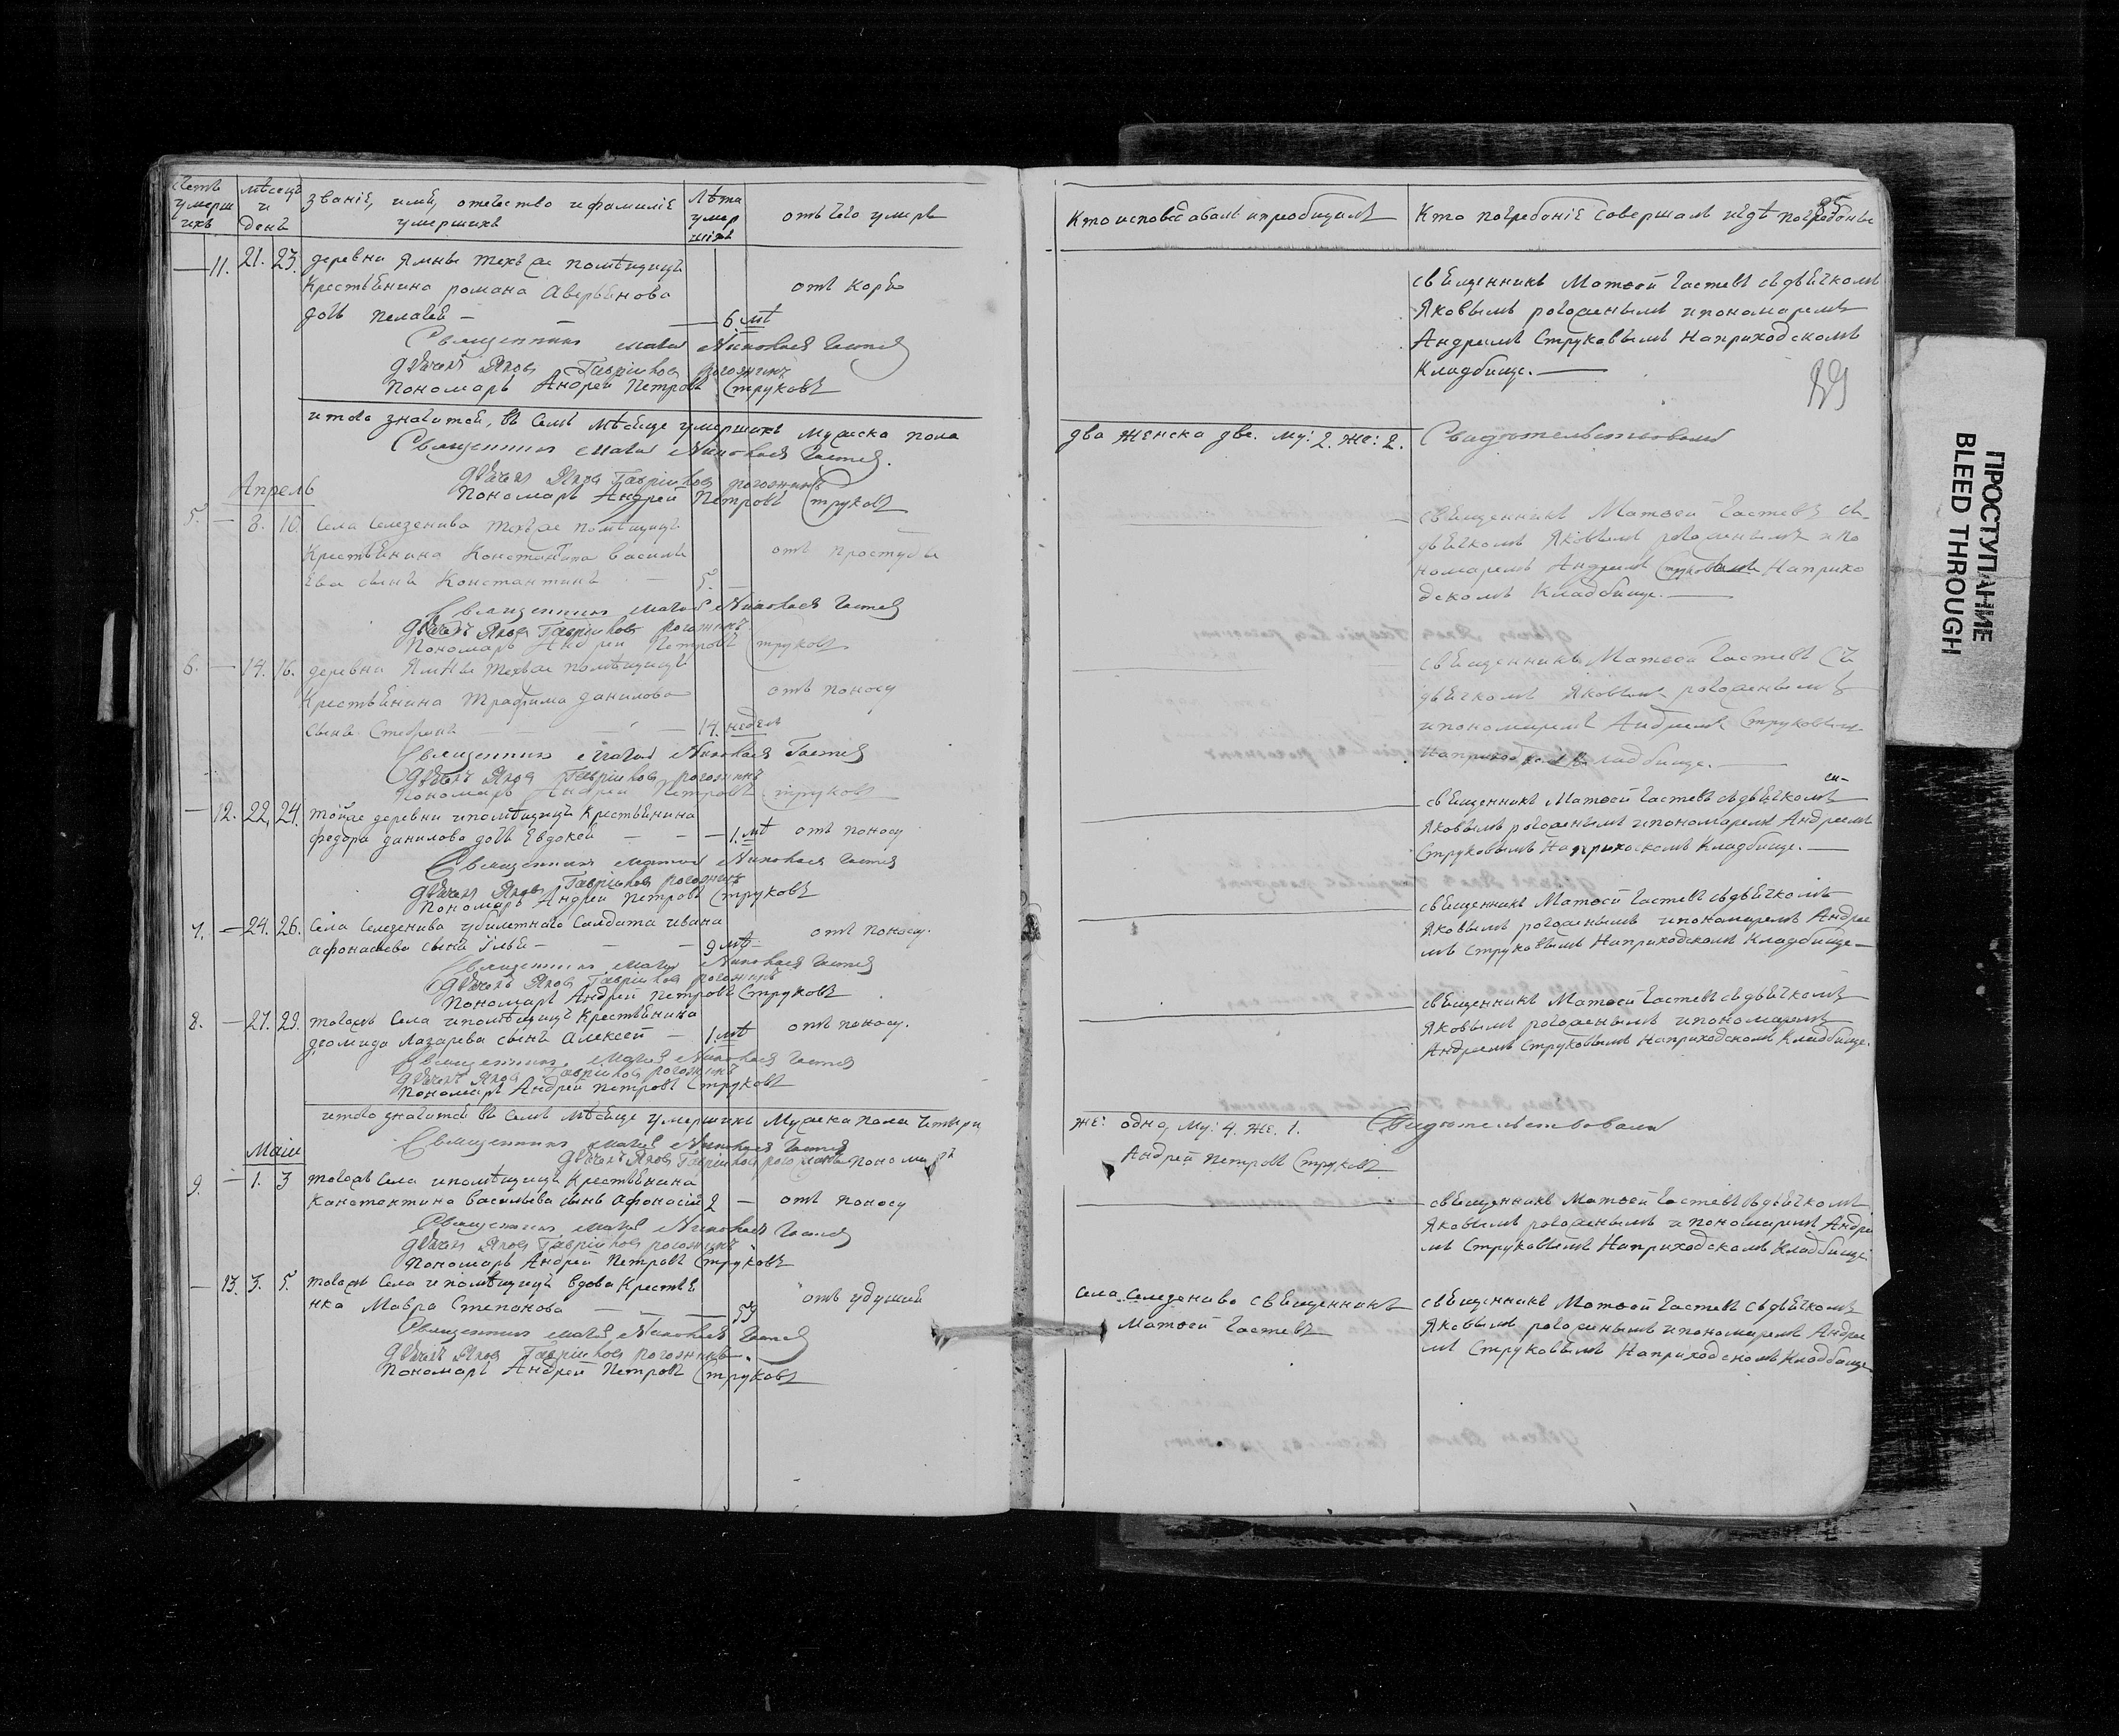 Счетъ умерш ихъ
мѣсецъ и день
званіе, имя, отечество и фамиліе умершихъ
Лѣта умер шихъ
отъ чего умеръ
—11. 21. 23. деревни Ямны техъ же помѣщицъ
Крестьенина романа Аверьенова
отъ корю
дочь пелагея — — 6 мѣ
Священникъ Матвѣй Николаевъ Частев
дьячекъ Яковъ Гавріиловъ рогожинъ
Пономарь Андрей Петровъ Струковъ
итого значится, въ семъ мѣсяце умершихъ Мужеска пола
Священникъ Матвѣй Николаевъ Частев.
дьячекъ Яковъ Гавріиловъ рогожинъ
Пономарь Андрей Петровъ Струковъ
Апрель
5. — 8. 10. Села Селезенива техъ же помѣщицъ
Крестьенина Константина василь
отъ простуды
ева сынъ Константинъ — 5.
Священникъ Матвѣй Николаевъ Частев
дьячекъ Яковъ Гавріиловъ рогожинъ
Пономарь Андрей Петровъ Струковъ
6. — 14. 16. деревни Ямны техъ же помѣщицъ
Крестьенина трафима данилова
отъ поносу
сынъ Стефанъ — — 14 недель
Священникъ Матвѣй Николаевъ Частев
дьячекъ Яковъ Гавріиловъ рогожинъ
Пономарь Андрей Петровъ Струковъ
—12. 22. 24. тойже деревни ипомѣщицъ Крестьенина
федора данилова дочь Евдокея — — 1. мѣ отъ поносу
Священникъ Матвѣй Николаевъ Частев
дьячекъ Яковъ Гавріиловъ рогожинъ
Пономарь Андрей Петровъ Струковъ
7. — 24. 26. Села Селезенива убилетного Салдата ивана
отъ поносу.
афонасьева сынъ Илья — — 9 мѣ
Священникъ Матвѣй Николаевъ Частев
дьячекъ Яковъ Гавріиловъ рогожинъ
Пономарь Андрей Петровъ Струковъ
8. — 27. 29. тогожъ Села ипомѣщицъ Крестьенина
диомида Лазарева сынъ Алексей — 1. мѣ отъ поносу.
Священникъ Матвѣй Николаевъ Частев
дьячекъ Яковъ Гавріиловъ рогожинъ
Пономарь Андрей Петровъ Струковъ
итого значится въ семъ мѣсяце умершихъ Мужска пола четыри
Священникъ Матвѣй Николаевъ Частев
дьячекъ Яковъ Гавріиловъ рогожинъ Пономарь
Маии
9. — 1. 3 тогожъ Села ипомѣщицъ Крестьенина
Канстантина Васильева сынъ Афонасій 2 — отъ поносу
Священникъ Матвѣй Николаевъ Частев
дьячекъ Яковъ Гавріиловъ рогожинъ
Пономарь Андрей Петровъ Струковъ
— 13. 3. 5. тогожъ Села ипомѣщицъ вдова Крестье
нка Мавра Степанова — — 59 отъ удушия
Священникъ Матвѣй Николаевъ Частев
дьячекъ Яковъ Гавріиловъ рогожинъ.
Пономарь Андрей Петровъ Струковъ
85
Кто исповѣдавалъ ипреобщилъ
Кто погребаніе совершалъ игдѣ погребены
свещенникъ Матвей Частевъ съдьечкомъ
Яковымъ рогоженымъ ипономаремъ
Андреемъ Струковымъ Наприходскомъ
Кладбище. —
два женска две. му: 2. же: 2.
Свидѣтельствовалъ
свещенникъ Матвей Частевъ съ
дьечкомъ Яковымъ рогоженымъ ипо
номаремъ Андреемъ Струковымъ Наприхо
дскомъ Кладбище. —
свещенникъ Матвей Частевъ съ
дьечкомъ Яковымъ рогоженымъ
ипономаремъ Андреемъ Струковымъ
Наприходскомъ Кладбище. —
свещенникъ Матвей Частевъ съдьечкомъ
Яковымъ рогоженымъ ипономаремъ Андреемъ
Струковымъ Наприхоскомъ Кладбище. —
свещенникъ Матвей Частевъ съдьечкомъ
Яковымъ рогоженымъ ипономаремъ Андрее
мъ Струковымъ Наприходскомъ Кладбище —
свещенникъ Матвей Частевъ съдьечкомъ
Яковымъ рогоженымъ ипономаремъ
Андреемъ Струковымъ Наприходскомъ Кладбище.
же: одна, му: 4. же. 1.
Свидѣтельствовали
Андрей Петровъ Струковъ
свещенникъ Матвей Частевъ съдьечкомъ
Яковымъ рогоженымъ ипономаремъ Андрее
мъ Струковымъ Наприходскомъ Кладбище
Села Селезенива свещенникъ
Матвей Частевъ
свещенникъ Матвей Частевъ съдьечкомъ
Яковымъ рогоженымъ ипономаремъ Андрее
мъ Струковымъ Наприходскомъ Кладбище
ПРОСТУПАНИЕ
BLEED THROUGH